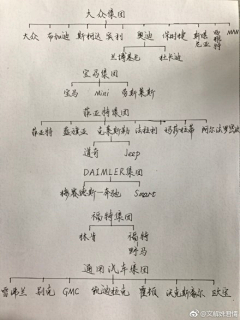 大众集团
大众 布加迪 斯柯达 宾利 奥迪 保时捷 斯堪尼亚 MAN
兰博基尼 杜卡迪
宝马集团
宝马 Mini 劳斯莱斯
菲亚特集团
菲亚特 蓝旗亚 克莱斯勒 法拉利 玛莎拉蒂 阿尔法罗密欧
道奇 Jeep
DAIMLER集团
梅赛德斯-奔驰 Smart
福特集团
林肯 福特
野马
通用汽车集团
雪佛兰 别克 GMC 凯迪拉克 霍顿 沃克斯豪尔 欧宝